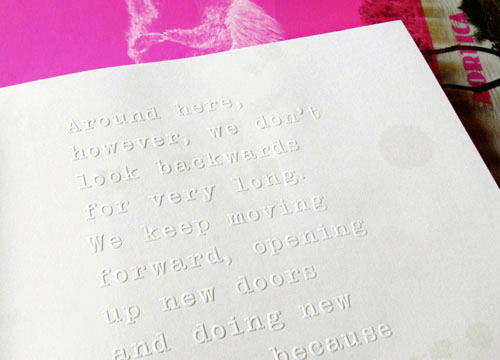 Around here,
however, we don't
look backwards
for very long.
We keep moving
forward, opening
up new doors
and doing new
because